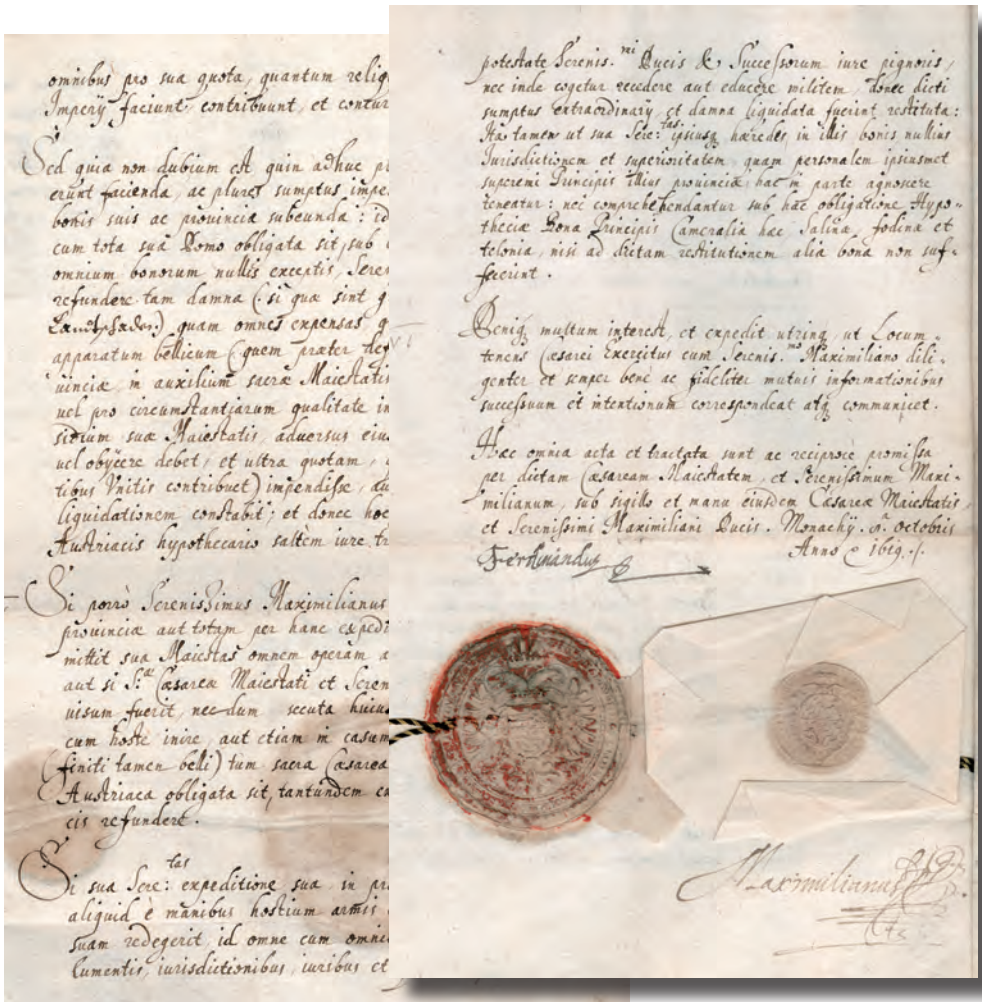 omnibus pro sua quota, quantum relig
Imperij faciunt, contribuunt, et contur
Sed quia non dubium est quin adhuc pr
erunt facienda, ac plures sumptus impe
bonis suis ac prouincia subeunda: id
cum tota sua Domo obligata sit, sub
omnium bonorum nullis exceptis, Seren
refundere tam damna (si quæ sint g
quam omnes expensas q
apparatum bellicum (quem præter def
uinciæ, in auxilium sacræ Maiestatis
uel pro circumstantiarum qualitate in
sidium suæ Maiestatis, aduersus eius
uel obijcere debet, et ultra quotam,
tibus Vnitis contribuet) impendisse, au
liquidationem constabit; et donec hoc
Austriacis hypothecario saltem iure tr
Si porrò Serenissimus Maximilianus
prouinciæ aut totam per hanc expedi
mittit sua Maiestas omnem operam a
aut si S.æ Cæsareæ Maiestati et Seren
uisum fuerit, necdum secuta huius
cum hoste inire, aut etiam in casum
(finiti tamen belli) tùm sacra Cæsarea
Austriaca obligata sit, tantundem ea
cis refundere.
Si sua Sere:tas expeditione sua in pr
aliquid è manibus hostium armis
suam redegerit, id omne cum omni
lumentis, iurisdictionibus, iuribus et
potestate Serenis.mi Ducis & Successorum iure pignoris,
nec inde cogetur recedere aut educere militem, donec dicti
sumptus extraordinarij et damna liquidata fuerint restituta:
Ita tamen ut sua Sere:tas ipsiusq hæredes, in illis bonis nullius
Iurisdictionem et superioritatem, quam personalem ipsiusmet
supremi Principis illius prouinciæ hac in parte agnoscere
teneatur: nec comprehehendantur sub hac obligatione Hypo-
thecæ Bona Principis Cameralia hæc, Salina, fodinæ et
telonia, nisi ad dictam restitutionem alia bona non suf-
fecerint.
Deniq multum interest, et expedit utrinq, ut Locum-
tenens Cæsarei Exercitus cum Serenis.mo Maximiliano dili-
genter et semper benè ac fideliter mutuis informationibus
successuum et intentionum correspondeat atq communicet.
Hæc omnia acta et tractata sunt ac reciprocè promissa
per dictam Cæsaream Maiestatem, et Serenissimum Maxi-
milianum, sub sigillo et manu eiusdem Cæsareæ Maiestatis
et Serenissimi Maximiliani Ducis. Monachij. 8. Octobris
Anno 1619.
Ferdinandus
Maximilianus